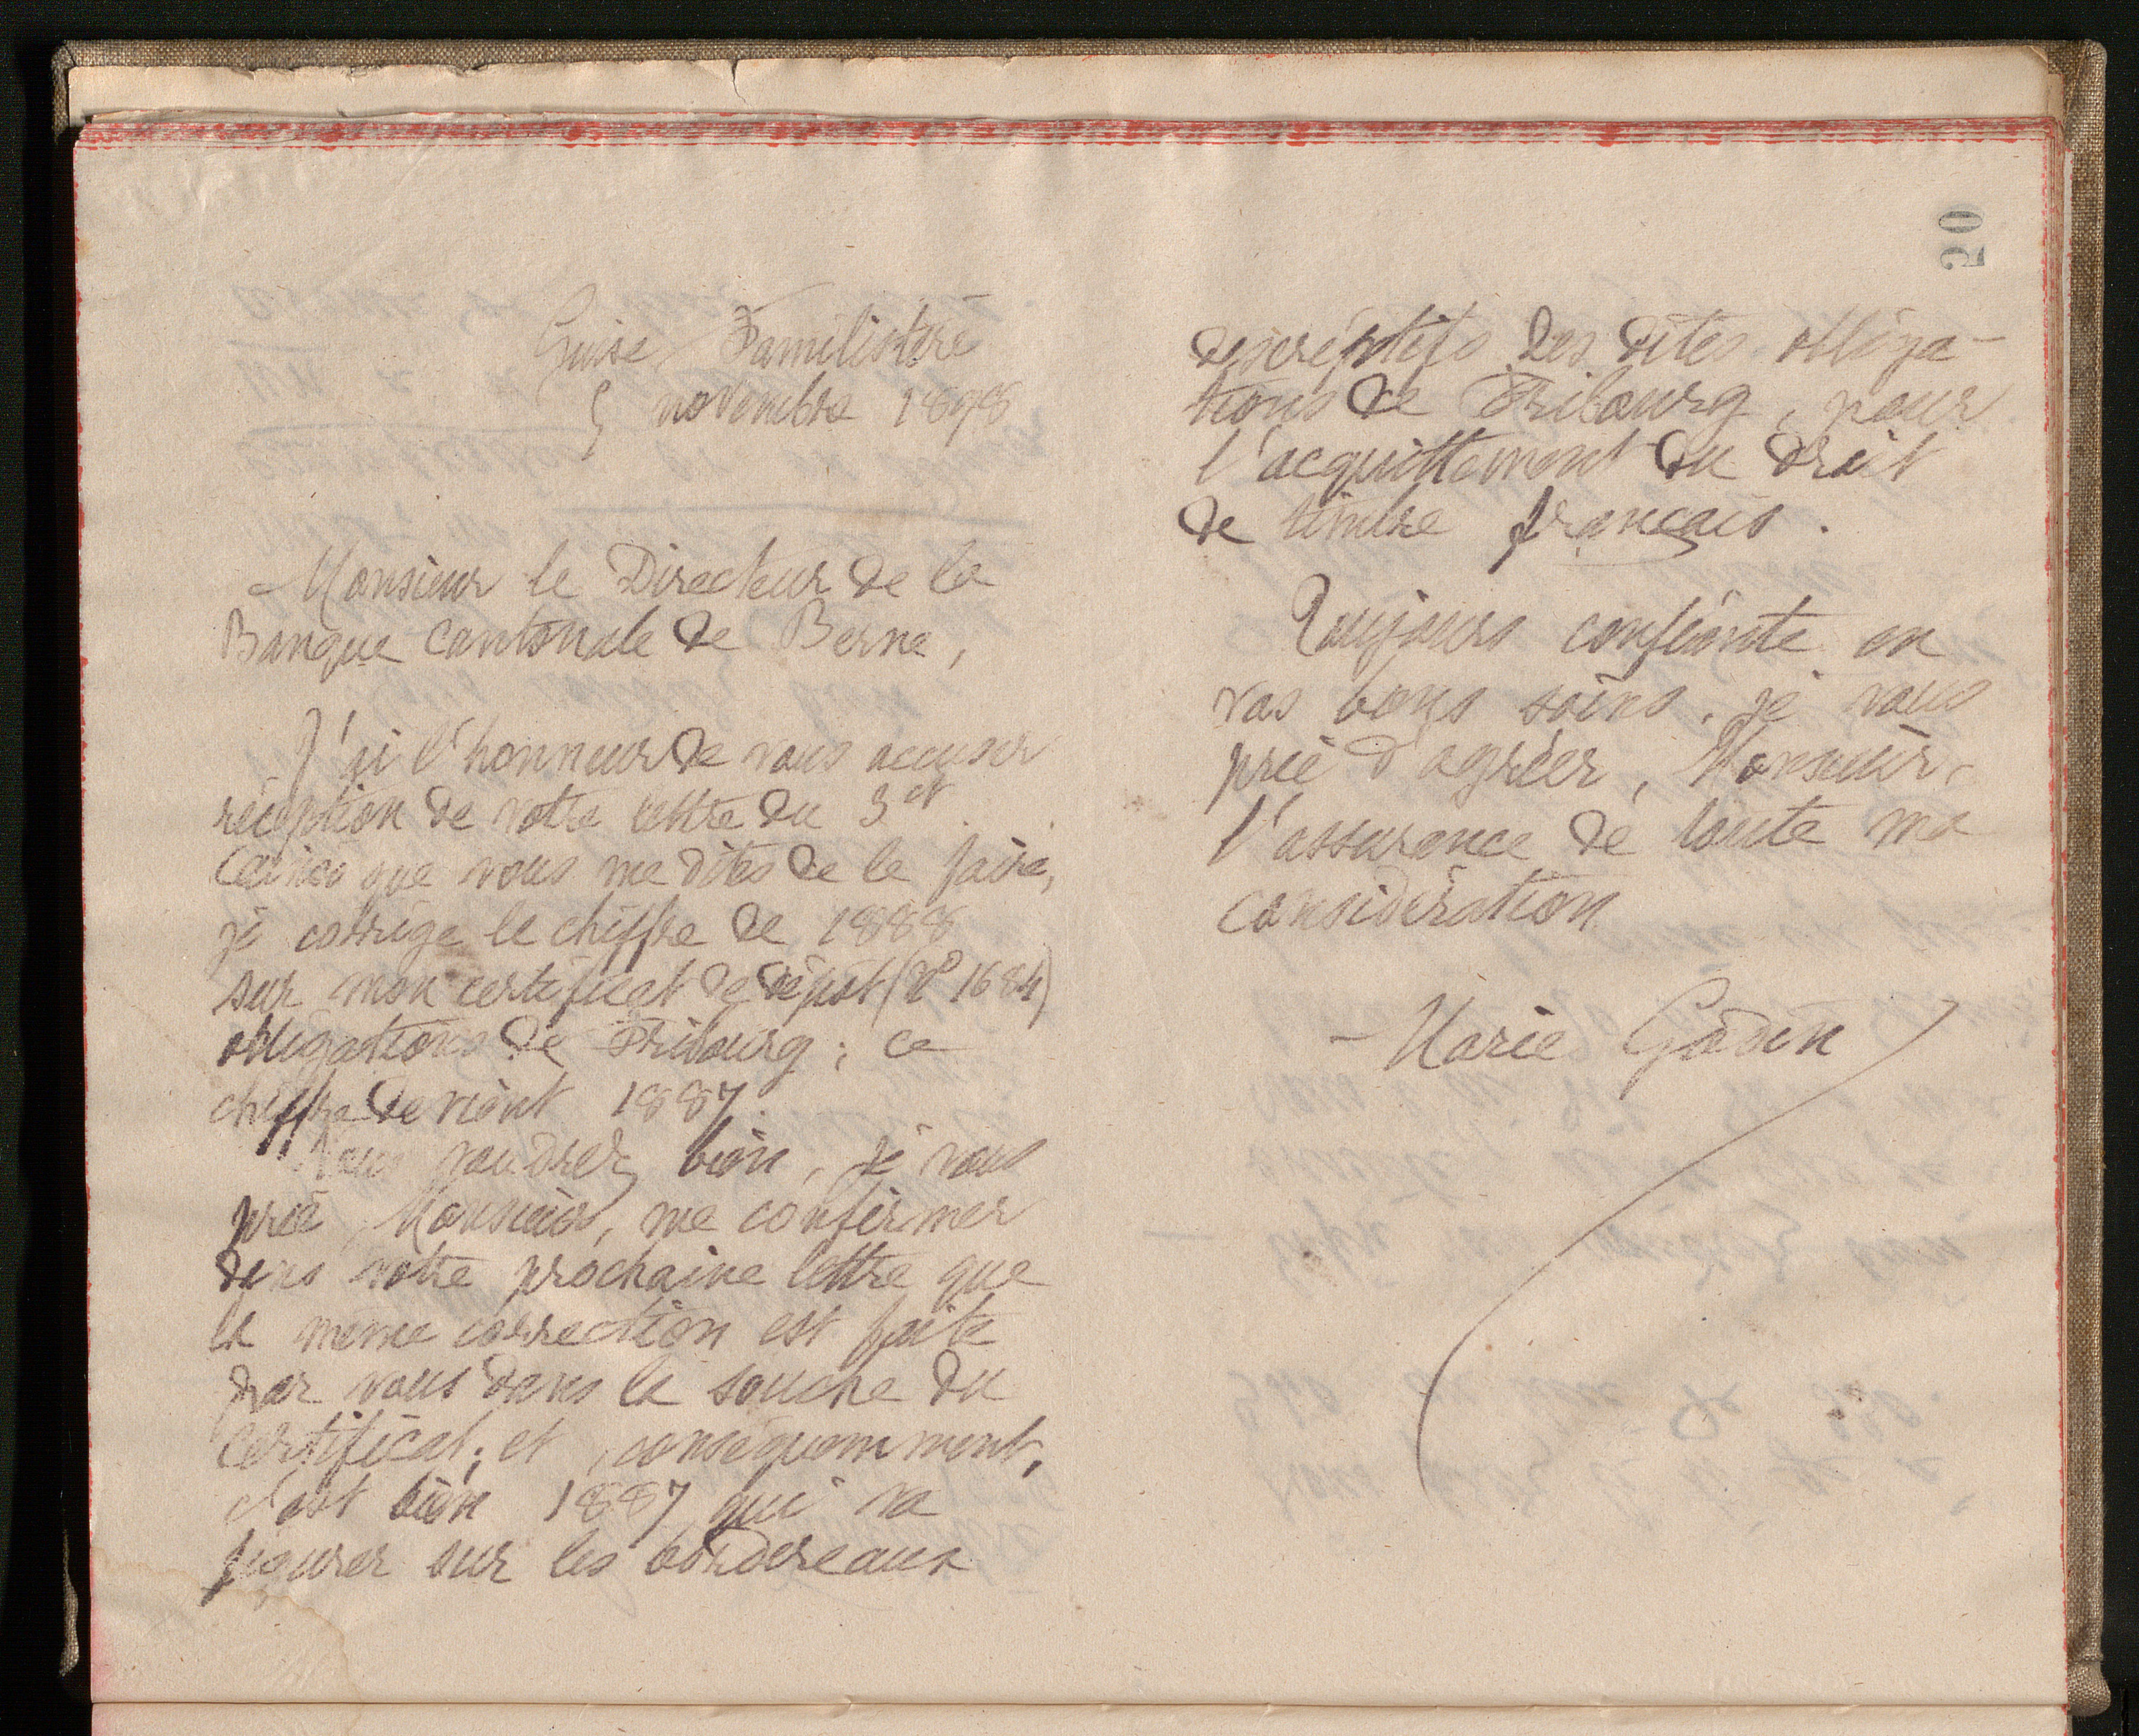 Guise Familistère
5 novembre 1898
Monsieur le Directeur de la
Banque cantonale de Berne,
J'ai l'honneur de vous accuser
réception de votre lettre du 3 ct.
Ainsi que vous me dites de le faire,
je corrige le chiffre de 1888
sur mon certificat de dépôt (No 1684)
obligations de Fribourg ; ce
chiffre devient 1887.
Vous voudrez bien, je vous
prie, Monsieur, me confirmer
dans votre prochaine lettre que
la même correction est faite
par vous dans la souche du
certificat ; et, conséquemment,
c'est bien 1887 qui va
figurer sur les bordereaux
20
descriptifs des dites obliga-
tions de Fribourg, pour
l'acquittement du droit
de timbre français.
Toujours confiante en
vos bons soins, je vous
prie d'agréer, Monsieur,
l'assurance de toute ma
considération
Marie Godin